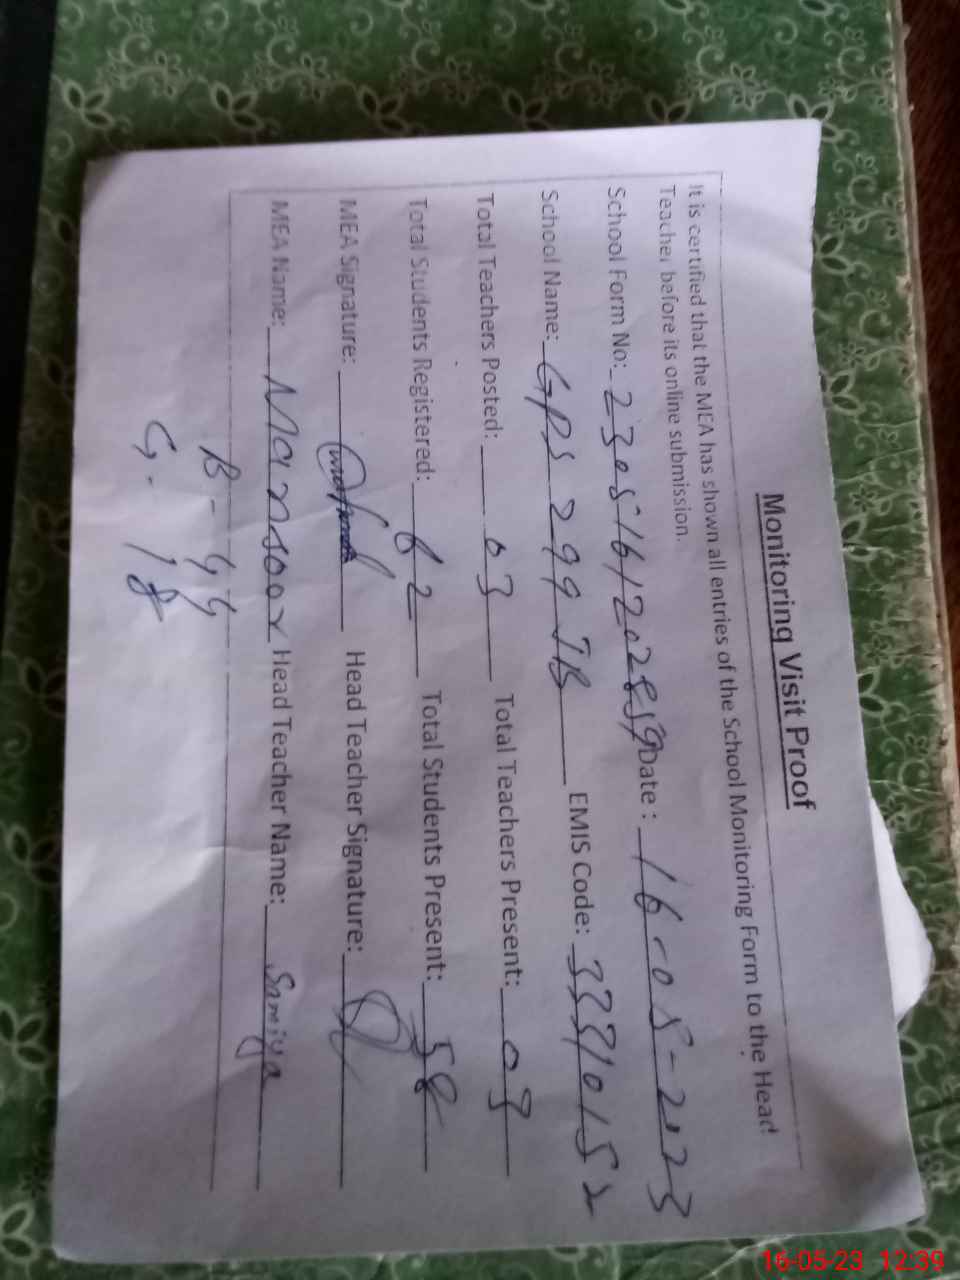 Monitoring Visit Proof
It is certified that the MEA has shown all entries of the School Monitoring Form to the Head
Teacher before its online submission.
School Form No: 2305161202859 Date : 16-05-2023
School Name: GPS 299 JB EMIS Code: 33310152
Total Teachers Posted: 03 Total Teachers Present: 03
Total Students Registered: 62 Total Students Present: 58
MEA Signature: Head Teacher Signature:
MEA Name: Mansoor Head Teacher Name: Samiya
B - 44
G. 18
16-05-23 12:39